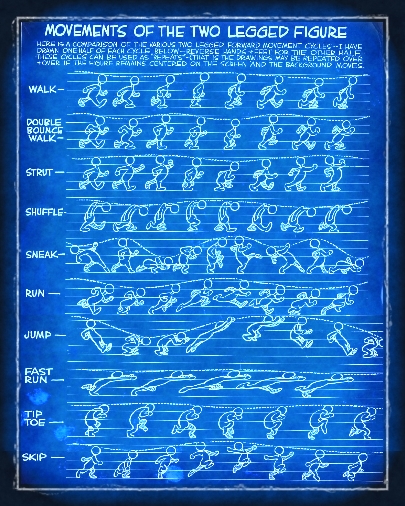 MOVEMENTS OF THE TWO LEGGED FIGURE
HERE IS A COMPARISON OF THE VARIOUS TWO LEGGED FORWARD MOVEMENT CYCLES--I HAVE
DRAWN ONE HALF OF EACH CYCLE BELOW--REVERSE HANDS & FEET FOR THE OTHER HALF.
THESE CYCLES CAN BE USED AS "REPEATS"--(THAT IS THE DRAWINGS MAY BE REPEATED OVER
& OVER IF THE FIGURE REMAINS CENTERED ON THE SCREEN AND THE BACKGROUND MOVES.
WALK—
DOUBLE
BOUNCE
WALK—
STRUT—
SHUFFLE—
SNEAK—
RUN —
JUMP —
FAST
RUN —
TIP
TOE —
SKIP —